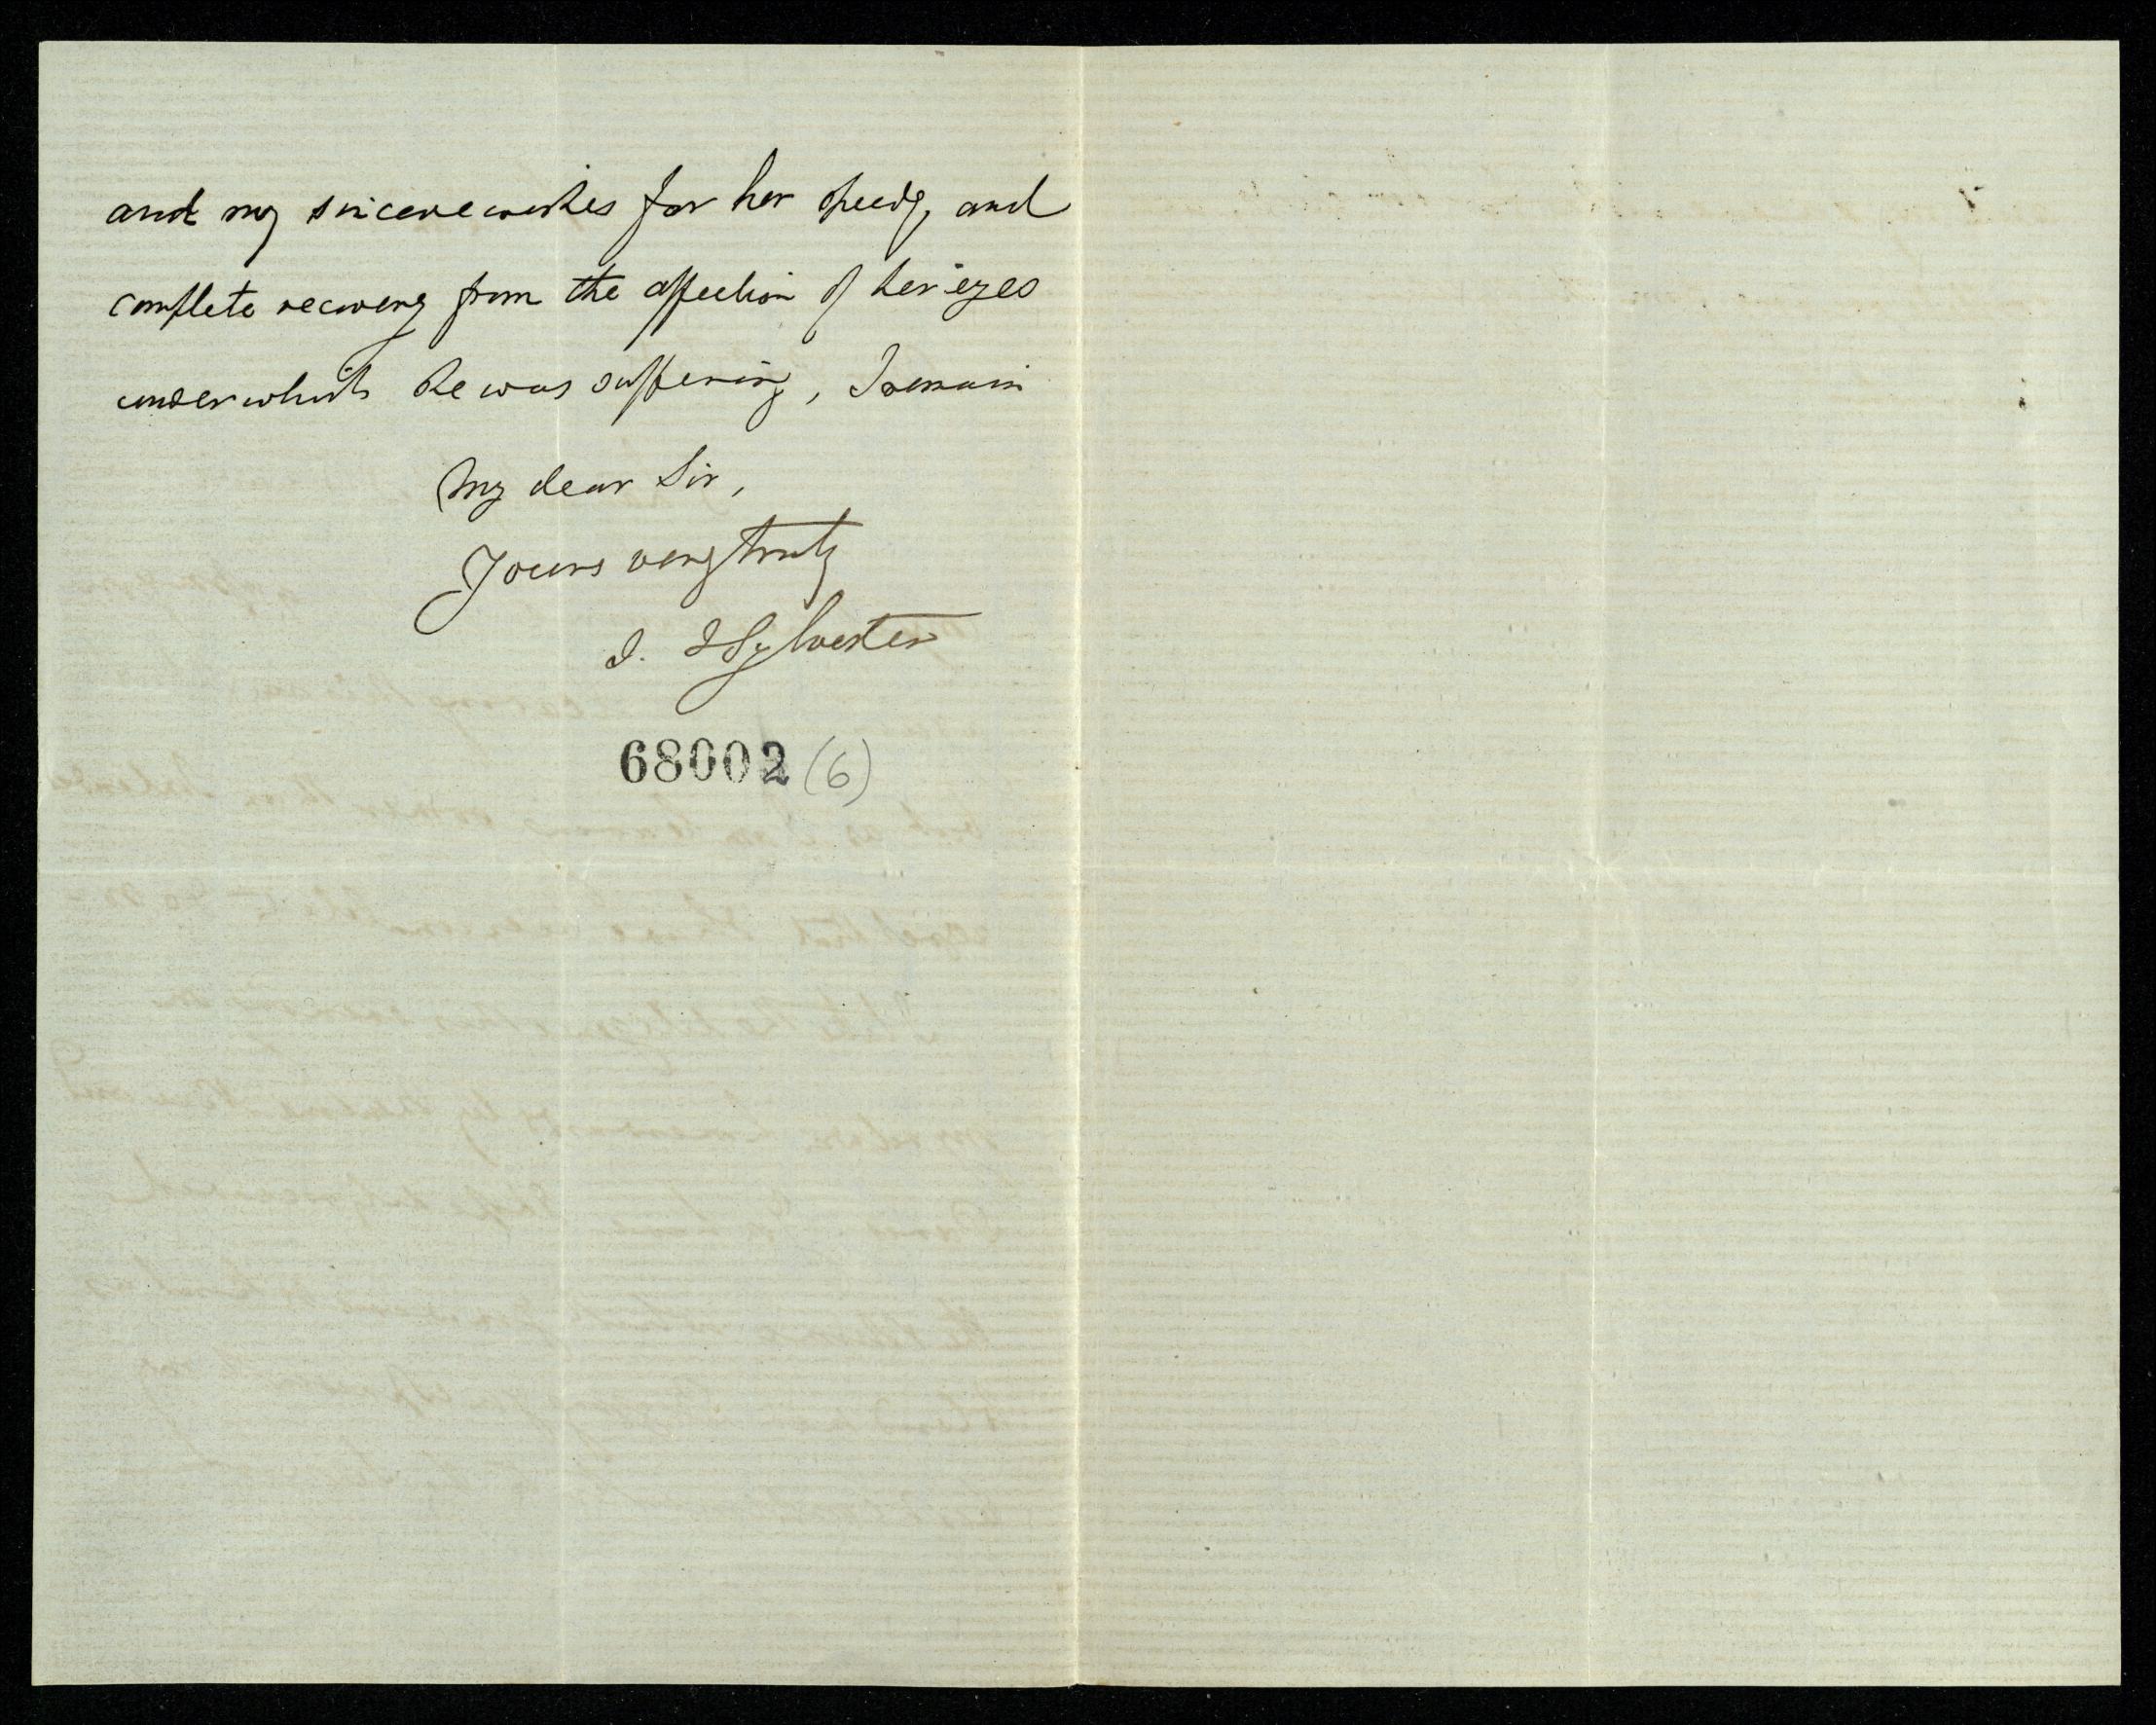 and my sincere wishes for her speedy and
complete recovery from the affection of her eyes
under which she was suffering, I remain
My dear Sir,
Yours very truly
J. J Sylvester
68002 (6)